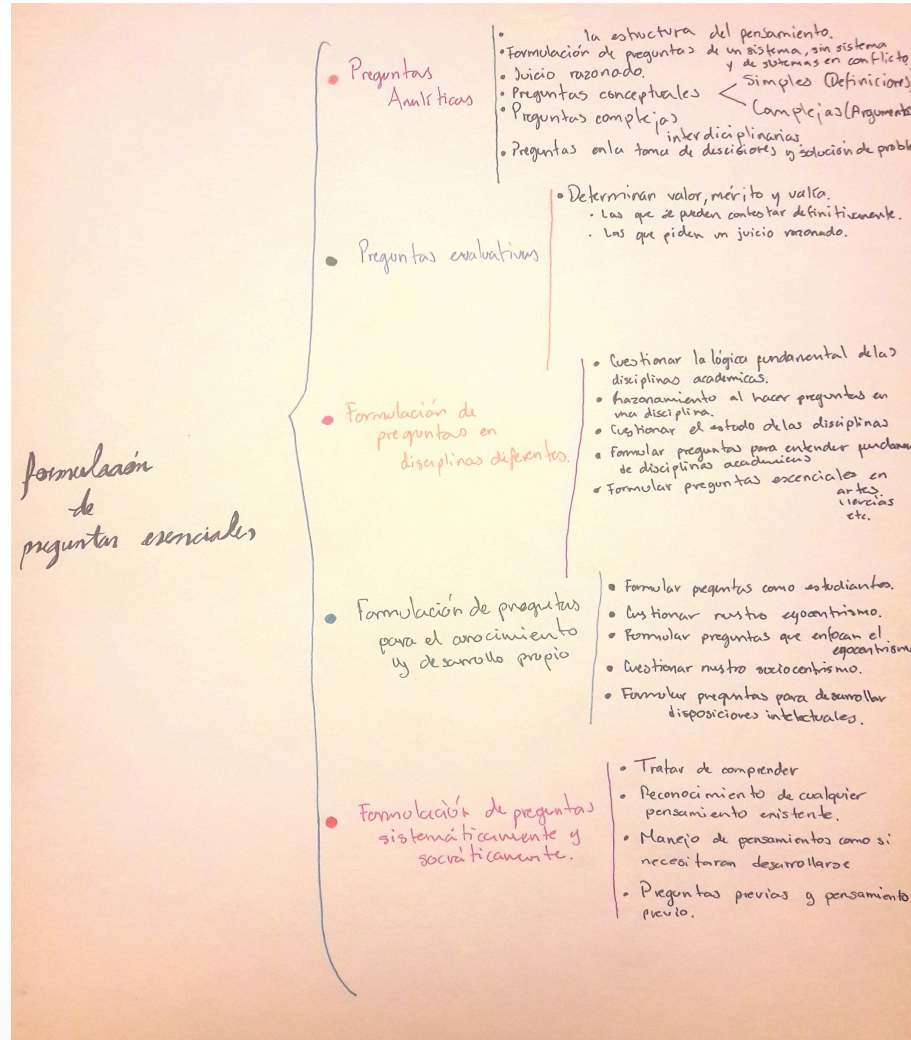 formulación
de
preguntas esenciales
Preguntas
Analíticas
la estructura del pensamiento.
Formulación de preguntas de un sistema, sin sistema
y de sistemas en conflicto
Juicio razonado.
Preguntas conceptuales
Simples (Definiciones)
Complejas (Argumento
Preguntas complejas
interdiciplinarias
Preguntas en la toma de descisiones y solución de probl
Preguntas evaluativas
Determinan valor, mérito y valía.
Las que se pueden contestar definitivamente.
Las que piden un juicio razonado.
Formulación de
preguntas en
disciplinas diferentes.
Cuestionar la lógica fundamental de las
disciplinas academicas.
Razonamiento al hacer preguntas en
una disciplina.
Custionar el estado de las disciplinas
Formular preguntas para entender fundam
de disciplinas academicas
Formular preguntas escenciales en
artes.
ciencias
etc.
Formulación de pregutas
para el conocimiento
y desarrollo propio
Formular peguntas como estudiantes.
Custionar nustro egocentrismo.
Formular preguntas que enfocan el
egocentrismo
Cuestionar nustro sociocentrismo.
Formular preguntas para desarrollar
disposiciones intelectuales.
Formulación de preguntas
sistemáticamente y
socráticamente.
Tratar de comprender
Reconocimiento de cualquier
pensamiento existente.
Manejo de pensamientos como si
necesitaran desarrollarse
Preguntas previas y pensamiento
previo.